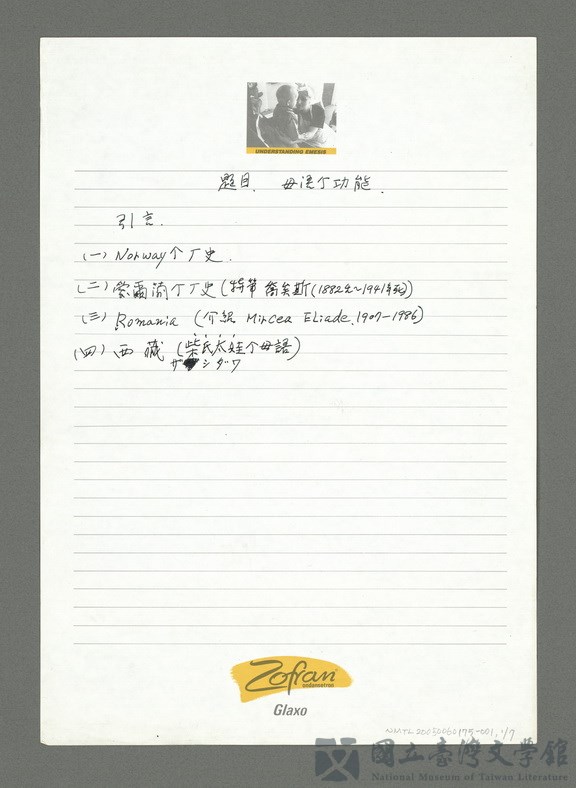 UNDERSTANDING EMESIS
題目. 母語个功能.
引言.
(一) Norway个厂史.
(二) 愛爾蘭个厂史(特筆 喬矣斯(1882生~1941年死))
(三) Romania (介紹 Mircea Eliade.1907-1986)
(四) 西藏 (柴氏太娃个母語)
ザシダワ
Zofran
ondansetron
Glaxo
NMTL20050060175-001, 1/7
國立臺灣文學館
National Museum of Taiwan Literature